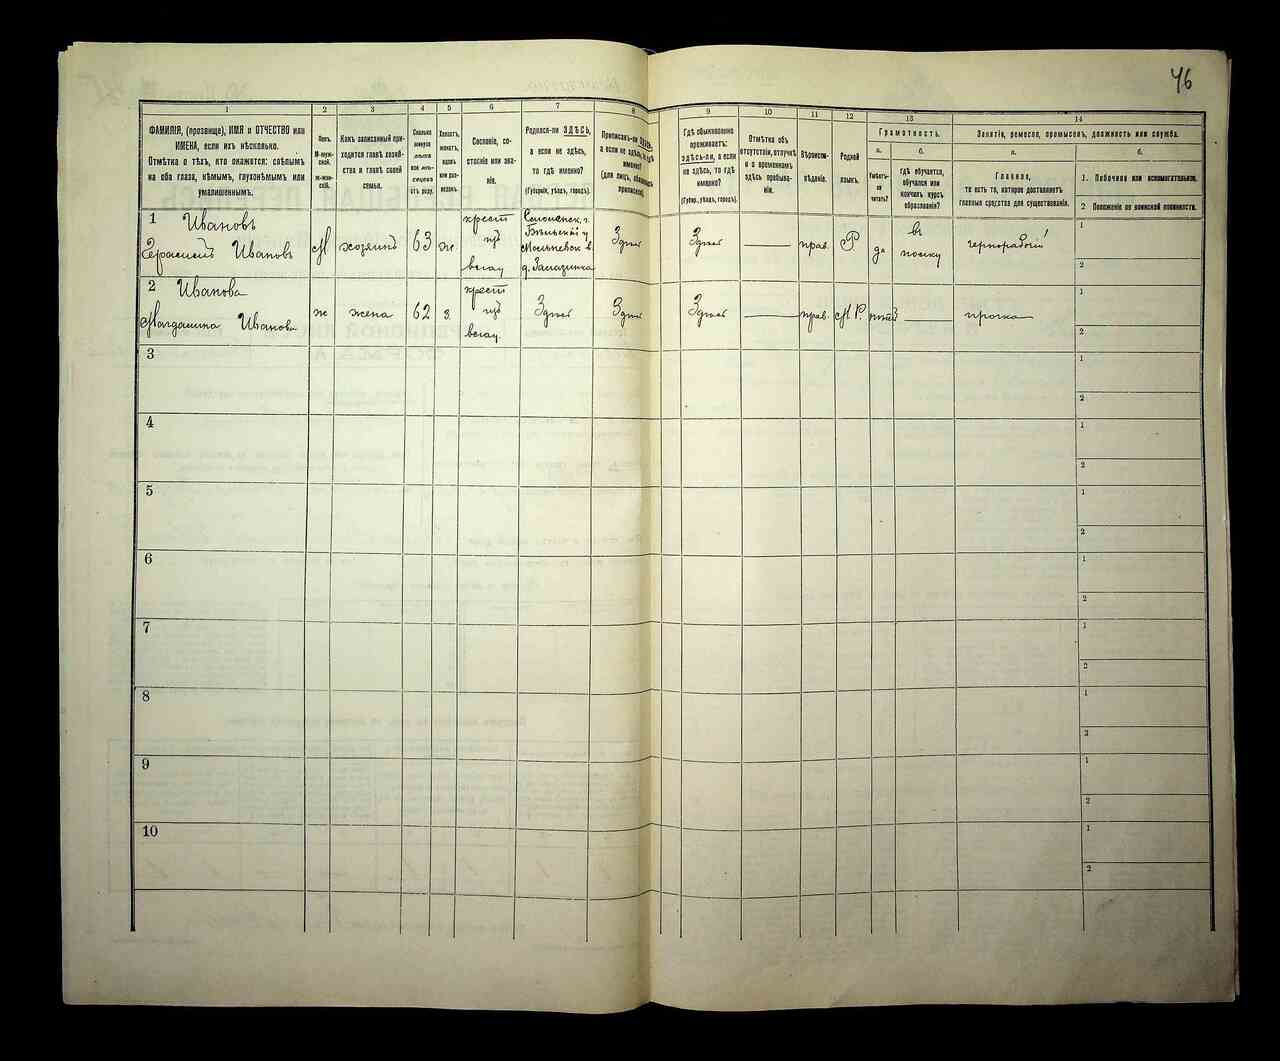 46
1
2
3
4
5
6
7
8
9
10
11
12
13
14
ФАМИЛІЯ, (прозвище), ИМЯ и ОТЧЕСТВО или
ИМЕНА, если ихъ нѣсколько.
Отмѣтка о тѣхъ, кто окажется: слѣпымъ
на оба глаза, нѣмымъ, глухонѣмымъ или
умалишеннымъ.
Полъ.
М-муж-
ской.
ж-жен-
скій.
Какъ записанный при-
ходится главѣ хозяй-
ства и главѣ своей
семьи.
Сколько
минуло
лѣтъ
или мѣ-
сяцевъ
отъ роду.
Холостъ,
женатъ,
вдовъ
или раз-
веденъ.
Сословіе, со-
стояніе или зва-
ніе.
Родился-ли ЗДѢСЬ,
а если не здѣсь,
то гдѣ именно?
(Губернія, уѣздъ, городъ).
Приписанъ-ли
а если не здѣсь, то гдѣ
именно?
(для лицъ,
Гдѣ обыкновенно
проживаетъ:
ЗДѢСЬ-ли, а если
не здѣсь, то гдѣ
именно?
(Губер., уѣздъ, городъ).
Отмѣтка объ
отсутствіи, отлучкѣ
и о временномъ
здѣсь пребыва-
ніи.
Вѣроиспо-
вѣданіе.
Родной
языкъ.
Грамотность.
а.
Умѣетъ-
ли
читать?
б.
гдѣ обучается,
обучался или
кончилъ курсъ
образованія?
Занятія, ремесло, промыселъ, должность или служба.
а.
Главное,
то есть то, которое доставляетъ
главныя средства для существованія.
б.
1. Побочное или вспомогательное.
2 Положеніе по воинской повинности.
1 Ивановъ
Герасимъ Ивановъ
М
хозяинъ
63
ж
крест
изъ
Смоленск. г.
д.
Здѣсь
Здѣсь
прав.
Р
да
въ
полку
чернорабочій
1
2
2 Иванова
Магдалина Иванова
ж
жена
62
з.
крест
изъ
Здѣсь
Здѣсь
Здѣсь
прав.
нѣтъ
прачка
1
2
3
1
2
4
1
2
5
1
2
6
1
2
7
1
2
8
1
2
9
1
2
10
1
2